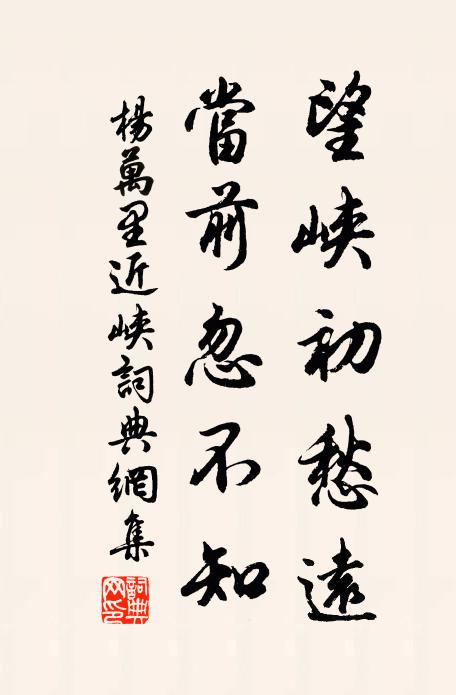 望峽初愁遠
當前忽不知
楊萬里近峽詞典網集
詞典網印